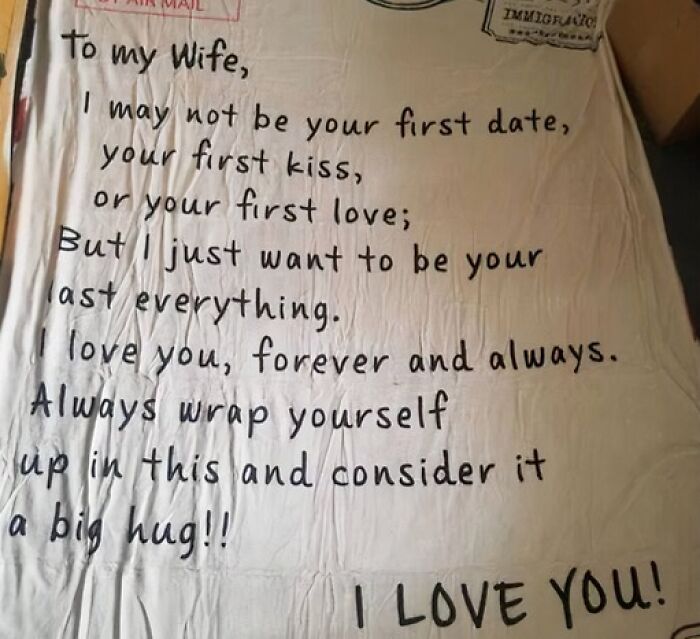 AIR MAIL
IMMIGRATIO
To my Wife,
I may not be your first date,
your first kiss,
or your first love;
But I just want to be your
last everything.
I love you, forever and always.
Always wrap yourself
up in this and consider it
a big hug!!
I LOVE YOU!